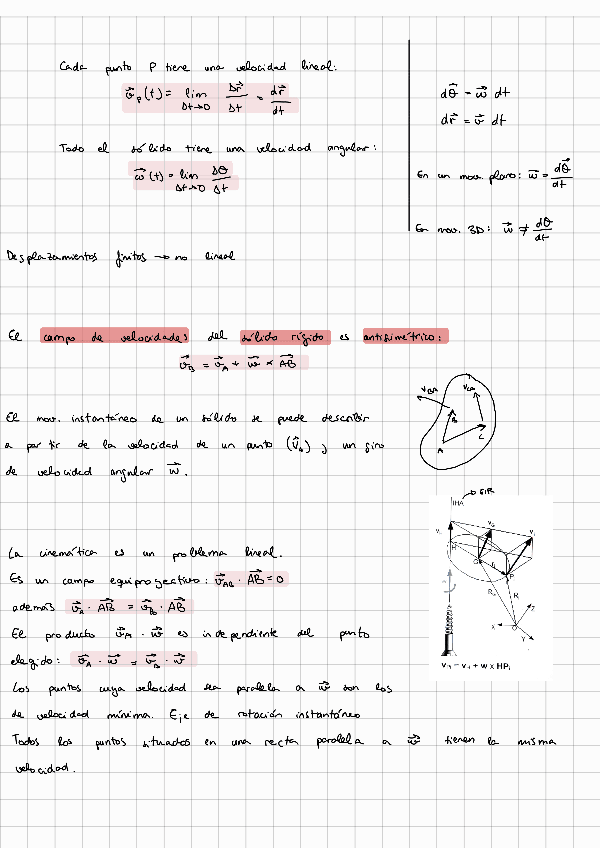 Cada punto P tiene una velocidad lineal:
v⃗_P(t) = lim Δt→0 Δr⃗/Δt = dr⃗/dt
Todo el sólido tiene una velocidad angular:
w⃗(t) = lim Δt→0 Δθ/Δt
dθ⃗ = w⃗ dt
dr⃗ = v⃗ dt
En un mov. plano: w⃗ = dθ⃗/dt
En mov. 3D: w⃗ ≠ dθ/dt
Desplazamientos finitos → no lineal
El campo de velocidades del sólido rígido es antisimétrico:
v⃗_B = v⃗_A + w⃗ × AB⃗
El mov. instantáneo de un sólido se puede describir
a partir de la velocidad de un punto (v⃗_A) y un giro
de velocidad angular w⃗.
V_BA
V_CA
B
C
A
La cinemática es un problema lineal.
Es un campo equiproyectivo: v⃗_AB · AB⃗ = 0
además v⃗_A · AB⃗ = v⃗_B · AB⃗
El producto v⃗_A · w⃗ es independiente del punto
elegido: v⃗_A · w⃗ = v⃗_B · w⃗
Los puntos cuya velocidad sea paralela a w⃗ son los
de velocidad mínima. Eje de rotación instantáneo
Todos los puntos situados en una recta paralela a w⃗ tienen la misma
velocidad.
IHA → EIR
H
P
R